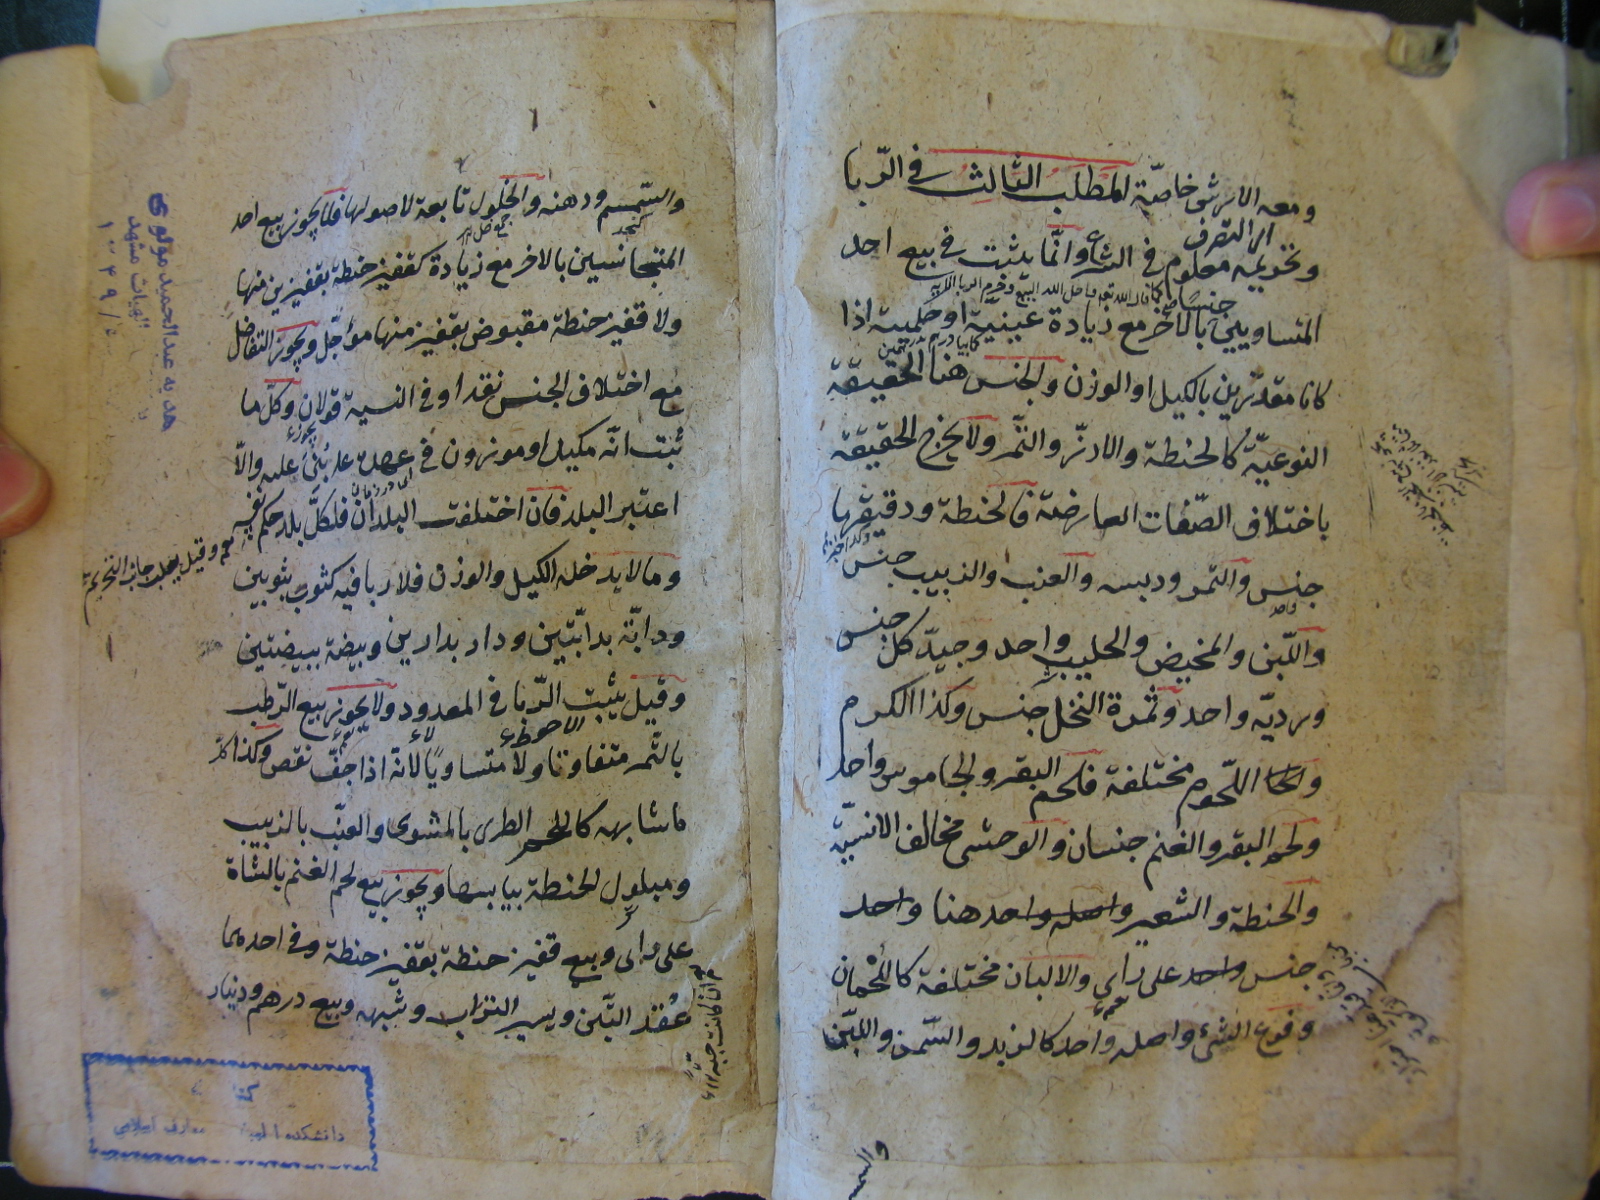 ومعه الارش خاصّة المطلب الثالث فى الرّبا
وتحريمه معلوم فى الشرع وانّما يثبت فى بيع احد
المتساويين جنسًا بالآخر مع زيادة عينيّة او حكميّة اذا
كانا مقدّرين بالكيل او الوزن والجنس هنا الحقيقة
النوعيّة كالحنطة والارزّ والتّمر ولا يخرج الحقيقة
باختلاف الصّفات العارضة فالحنطة ودقيقها
جنس والتّمر ودبسه والعنب والزبيب جنس
واللّبن والمخيض والحليب واحد وجيّد كلّ جنس
ورديّه واحد وثمرة النخل جنس وكذا الكرم
واللّحوم مختلفة فلحم البقر والجاموس واحد
ولحم البقر والغنم جنسان والوحشى مخالف الانسيّة
والحنطة والشعير هنا
جنس واحد على راى والالبان مختلفة كاللّحمان
وفروع الشىء واصله واحد كالزبد والسّمن واللّبن
والسمسم
والسّمسم ودهنه والخلول تابعة لاصولها فلا يجوز بيع احد
كنجد
المتجانسين بالاخر مع زيادة كقفيز حنطة بقفيزين منها
ولا قفيز حنطة مقبوض بقفيز منها مؤجّل ويجوز التفاضل
مع اختلاف الجنس نقدا وفى النسية قولان وكلّ ما
ثبت انّه مكيل او موزون فى عهده علم بُنىَ عليه والّا
اعتبر البلد فان اختلفت البلدان فلكلّ بلد حكم نفسه
وقيل يغلب جانب التحريم
وما لا يدخله الكيل والوزن فلا ربا فيه كثوب بثوبين
ودابّة بدابّتين ودار بدارين وبيضة ببيضتين
وقيل يثبت الرّبا فى المعدود ولا يجوز بيع الرّطب
بالتّمر متفاوتا ولا متساويًا لانّه اذا جفّ نقص وكذا كلّ
ما شابهه كاللحم الطرى بالمشوى والعنب بالزبيب
ومبلول الحنطة بيابسها ويجوز بيع لحم الغنم بالشاة
على راى وبيع قفيز حنطة بقفيز حنطة وفى احدهما
عُقَد التّبن ويسير التراب وشبهه وبيع درهم ودينار
هديه عبدالحميد مولوى
الهيات مشهد
دانشكده الهيات معارف اسلامى